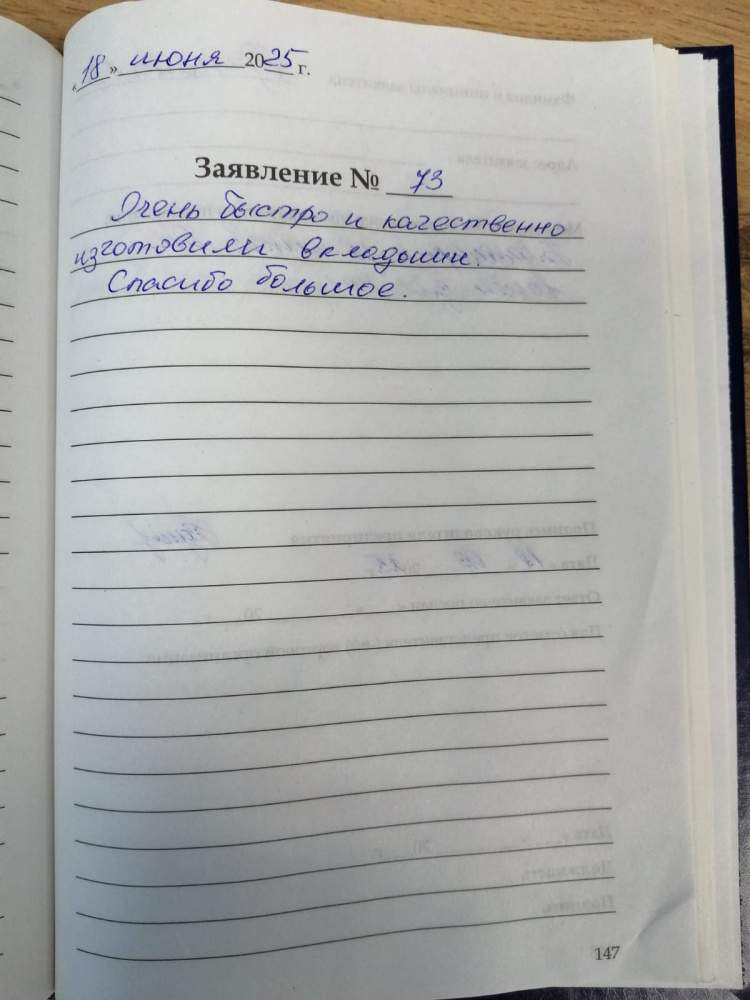 «18» июня 2025 г.
Заявление № 73
Очень быстро и качественно
изготовили вкладыши.
Спасибо большое.
147